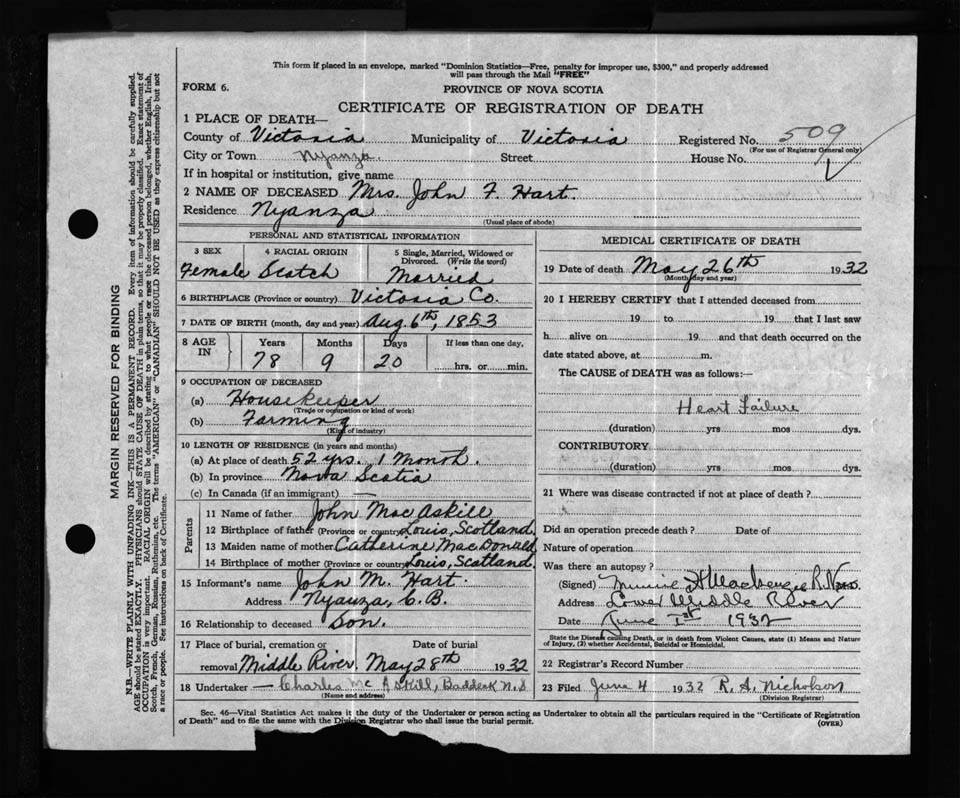 This form if placed in an envelope, marked "Dominion Statistics—Free, penalty for improper use, $300," and properly addressed
will pass through the Mail "FREE"
FORM 6.
PROVINCE OF NOVA SCOTIA
CERTIFICATE OF REGISTRATION OF DEATH
1 PLACE OF DEATH—
County of Victoria Municipality of Victoria Registered No. 509
(For use of Registrar General only)
City or Town Nyanza Street House No.
If in hospital or institution, give name
2 NAME OF DECEASED Mrs. John F. Hart.
Residence Nyanza
(Usual place of abode)
PERSONAL AND STATISTICAL INFORMATION
3 SEX 4 RACIAL ORIGIN 5 Single, Married, Widowed or
Divorced. (Write the word)
Female Scotch Married
6 BIRTHPLACE (Province or country) Victoria Co.
7 DATE OF BIRTH (month, day and year) Aug. 6th, 1853
8 AGE IN Years Months Days If less than one day,
78 9 20 hrs. or min.
9 OCCUPATION OF DECEASED
(a) Housekeeper
(Trade or occupation or kind of work)
(b) Farming
(Kind of industry)
10 LENGTH OF RESIDENCE (in years and months)
(a) At place of death 52 yrs. 1 Month.
(b) In province Nova Scotia
(c) In Canada (if an immigrant) —
Parents
11 Name of father John MacAskill
12 Birthplace of father (Province or country) Louis, Scotland.
13 Maiden name of mother Catherine MacDonald
14 Birthplace of mother (Province or country) Louis, Scotland.
15 Informant's name John M. Hart.
Address Nyanza, C.B.
16 Relationship to deceased Son.
17 Place of burial, cremation or Date of burial
removal Middle River. May 28th 1932
18 Undertaker — Charles McAskill, Baddeck N.S
(Name and address)
MEDICAL CERTIFICATE OF DEATH
19 Date of death May 26th 1932
(Month, day and year)
20 I HEREBY CERTIFY that I attended deceased from
19 to 19 that I last saw
h alive on 19 and that death occurred on the
date stated above, at m.
The CAUSE of DEATH was as follows:—
Heart Failure
(duration) yrs mos dys.
CONTRIBUTORY
(duration) yrs mos dys.
21 Where was disease contracted if not at place of death?
Did an operation precede death? Date of
Nature of operation
Was there an autopsy?
(Signed) Minnie MacKenzie R.N. M.D.
Address Lower Middle River
Date June 1st 1932
State the Disease causing Death, or in death from Violent Causes, state (1) Means and Nature
of Injury, (2) whether Accidental, Suicidal or Homicidal.
22 Registrar's Record Number
23 Filed June 4 1932 R. A. Nicholson
(Division Registrar)
Sec. 46—Vital Statistics Act makes it the duty of the Undertaker or person acting as Undertaker to obtain all the particulars required in the "Certificate of Registration
of Death" and to file the same with the Division Registrar who shall issue the burial permit. (OVER)
MARGIN RESERVED FOR BINDING
N.B.—WRITE PLAINLY WITH UNFADING INK—THIS IS A PERMANENT RECORD. Every item of information should be carefully supplied.
AGE should be stated EXACTLY. PHYSICIANS should STATE CAUSE OF DEATH in plain terms, so that it may be properly classified. Exact statement of
OCCUPATION is very important. RACIAL ORIGIN will be described by stating to what people or race the deceased person belonged, whether English, Irish,
Scotch, French, German, Russian, Ruthenian, etc. The terms "AMERICAN" or "CANADIAN" SHOULD NOT BE USED as they express citizenship but not
a race or people. See instructions on back of Certificate.